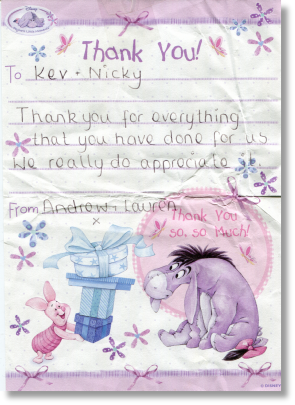 Thank You!
To Kev + Nicky
Thank you for everything
that you have done for us
We really do appreciate
From Andrew + Lauren
x
Thank You
so, so Much!
© DISNEY